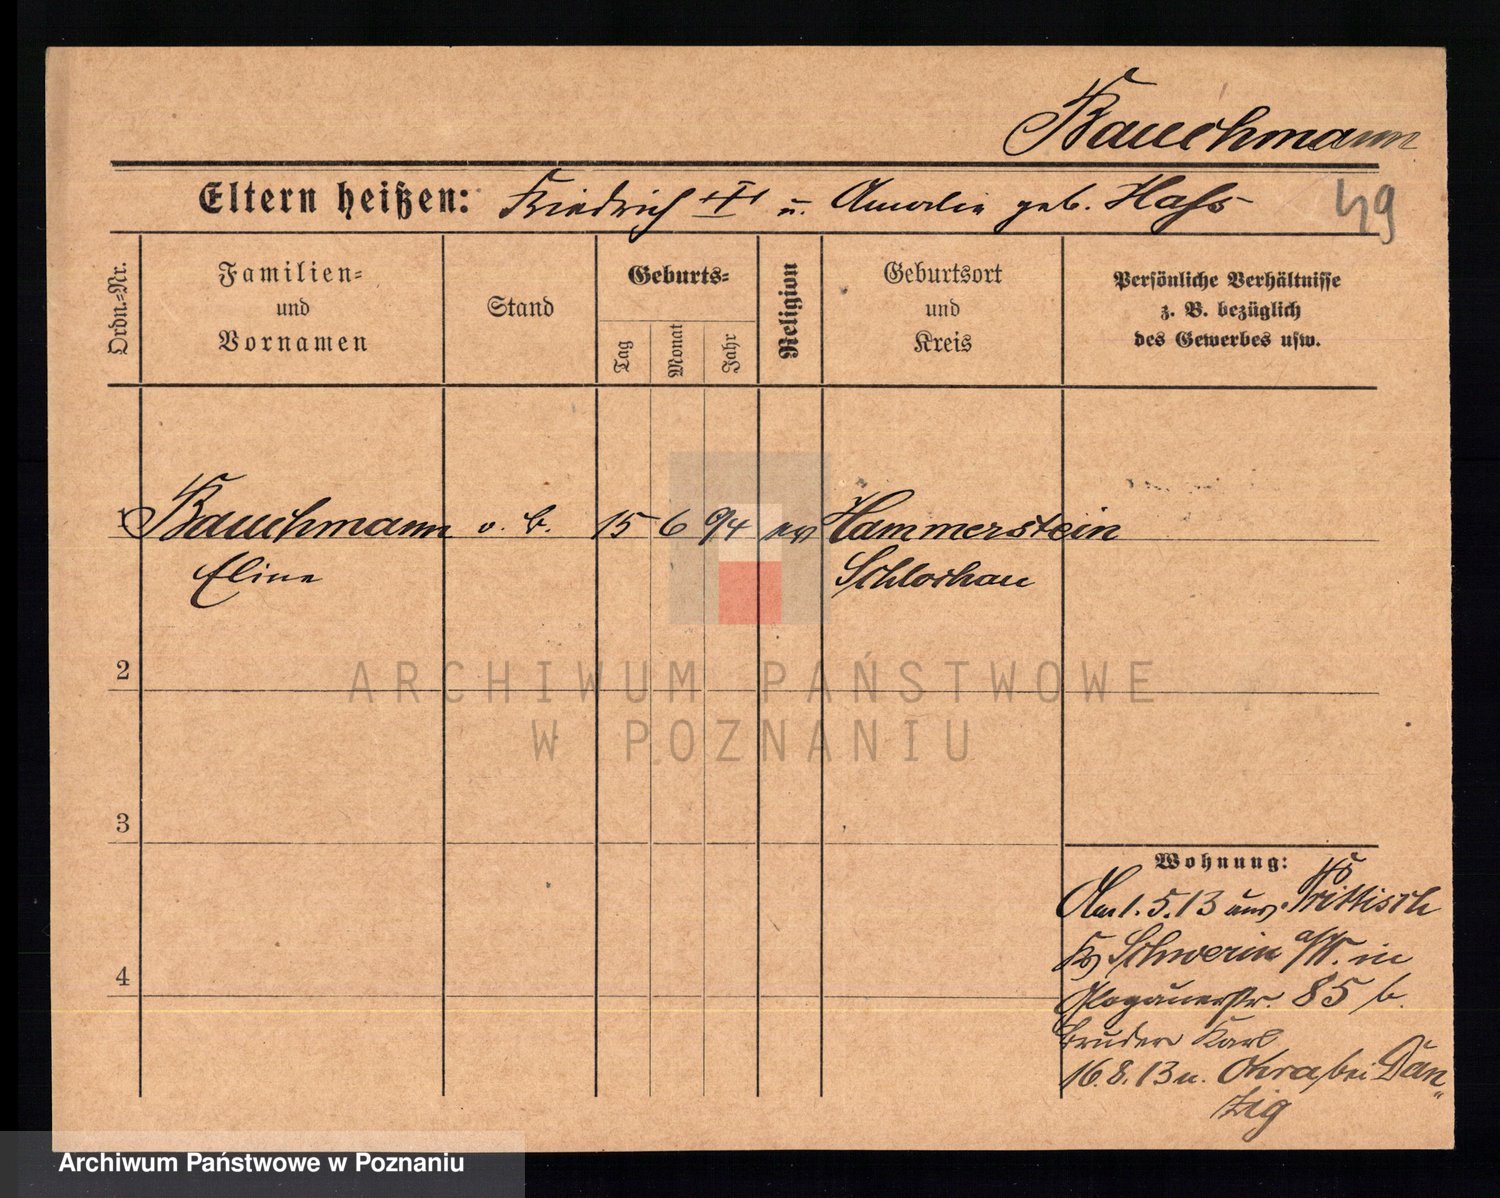 Bauchmann
Eltern heißen: Friedrich III u. Amalie geb. Haß
49
Ordn.-Nr.
Familien- und Vornamen
Stand
Geburts-
Tag
Monat
Jahr
Religion
Geburtsort und Kreis
Persönliche Verhältnisse
z. B. bezüglich
des Gewerbes usw.
1 Bauchmann o. B. 15 6 94 ev Hammerstein
Eline Schlochau
2
ARCHIWUM PAŃSTWOWE
W POZNANIU
3
4
Wohnung:
Am 1.5.13 aus Prittisch
Kr Schwerin a/W. in
Glogauerstr. 85 b.
Bruder Karl
16.8.13 n. Ohra bei Dan-
zig
Archiwum Państwowe w Poznaniu